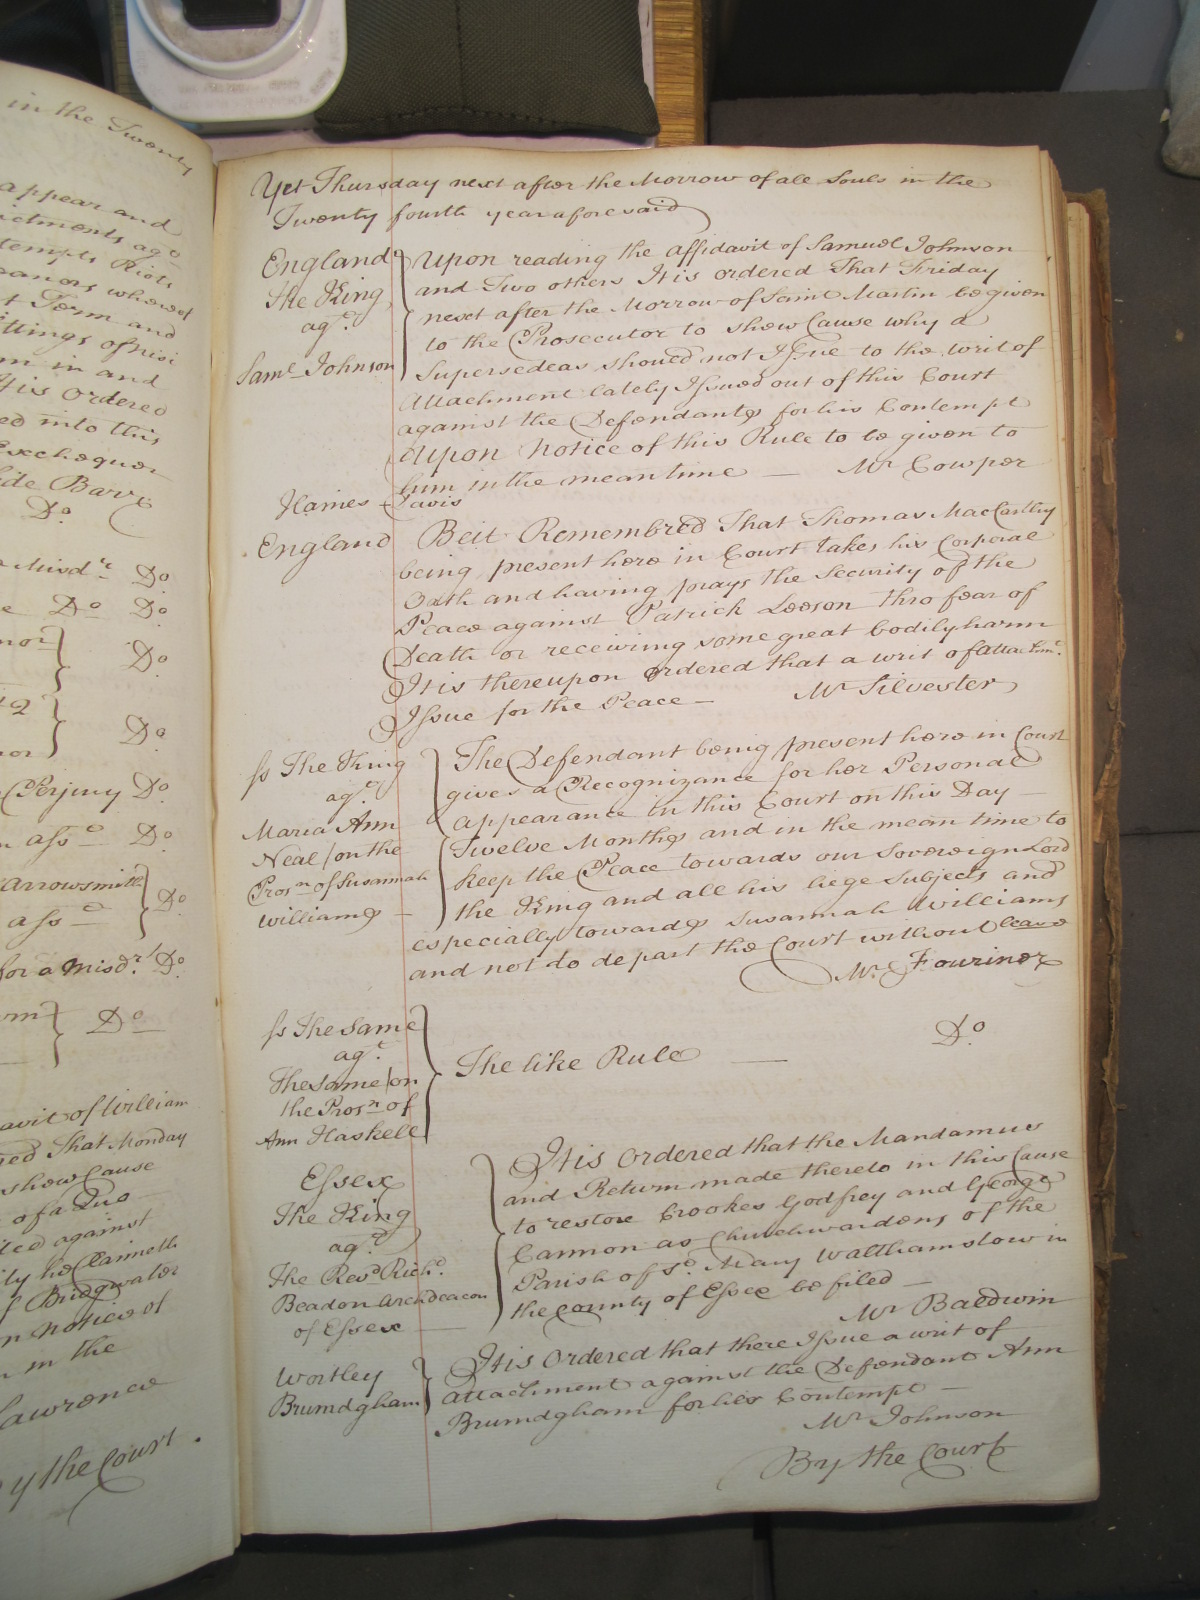 in the Twenty
appear and
ictments agt
tempts Riots
eanors whereof
t Term and
ittings of Nisi
m in and
It is Ordered
ed into this
Exchequer
ide Barr
Do
Misdr Do
e Do Do
nor Do
Do
nor
Perjury Do
n asst Do
Arrowsmith
asst Do
for a Misdr Do
Do
avit of William
red That Monday
shew Cause
of a Quo
ted against
ly he Claimeth
f Bridgwater
n notice of
in the
Lawrence
By the Court
Yet Thursday next after the Morrow of all Souls in the
Twenty fourth year aforesaid
England
The King
agt
Saml Johnson
Upon reading the affidavit of Samuel Johnson
and Two others It is ordered That Friday
next after the Morrow of Saint Martin be given
to the Prosecutor to shew Cause why a
Supersedeas should not Issue to the writ of
Attachment lately Issued out of this Court
against the Defendant for his Contempt
Upon Notice of this Rule to be given to
him in the mean time — Mr Cowper
Haines - Davis
England
Be it Remembred That Thomas MacCarthy
being present here in Court takes his Corporal
Oath and having prays the Security of the
Peace against Patrick Leeson thro fear of
Death or receiving some great bodily harm
It is thereupon ordered that a writ of Attachmt
Issue for the Peace — Mr Silvester
Ss The King
agt
Maria Ann
Neal / on the
Prosn of Susannah
Williams —
The Defendant being present here in Court
gives a Recognizance for her Personal
appearance in this Court on this Day —
Twelve Months and in the mean time to
keep the Peace towards our Sovereign Lord
the King and all his liege Subjects and
especially towards Susannah Williams
and not to depart the Court without leave
Mr Fouriner
Ss The Same
agt
The Same / on
the Prosn of
Ann Haskell
The like Rule — Do
Essex
The King
agt
The Revd Richd
Beadon Archdeacon
of Essex —
It is Ordered that the Mandamus
and Return made thereto in this Cause
to restore Crookes Godfrey and George
Cannon as Churchwardens of the
Parish of St Mary Walthamstow in
the County of Essex be filed —
Mr Baldwin
Wortley
Brumdgham
It is Ordered that there Issue a writ of
attachment against the Defendant Ann
Brumdgham for her Contempt —
Mr Johnson
By the Court